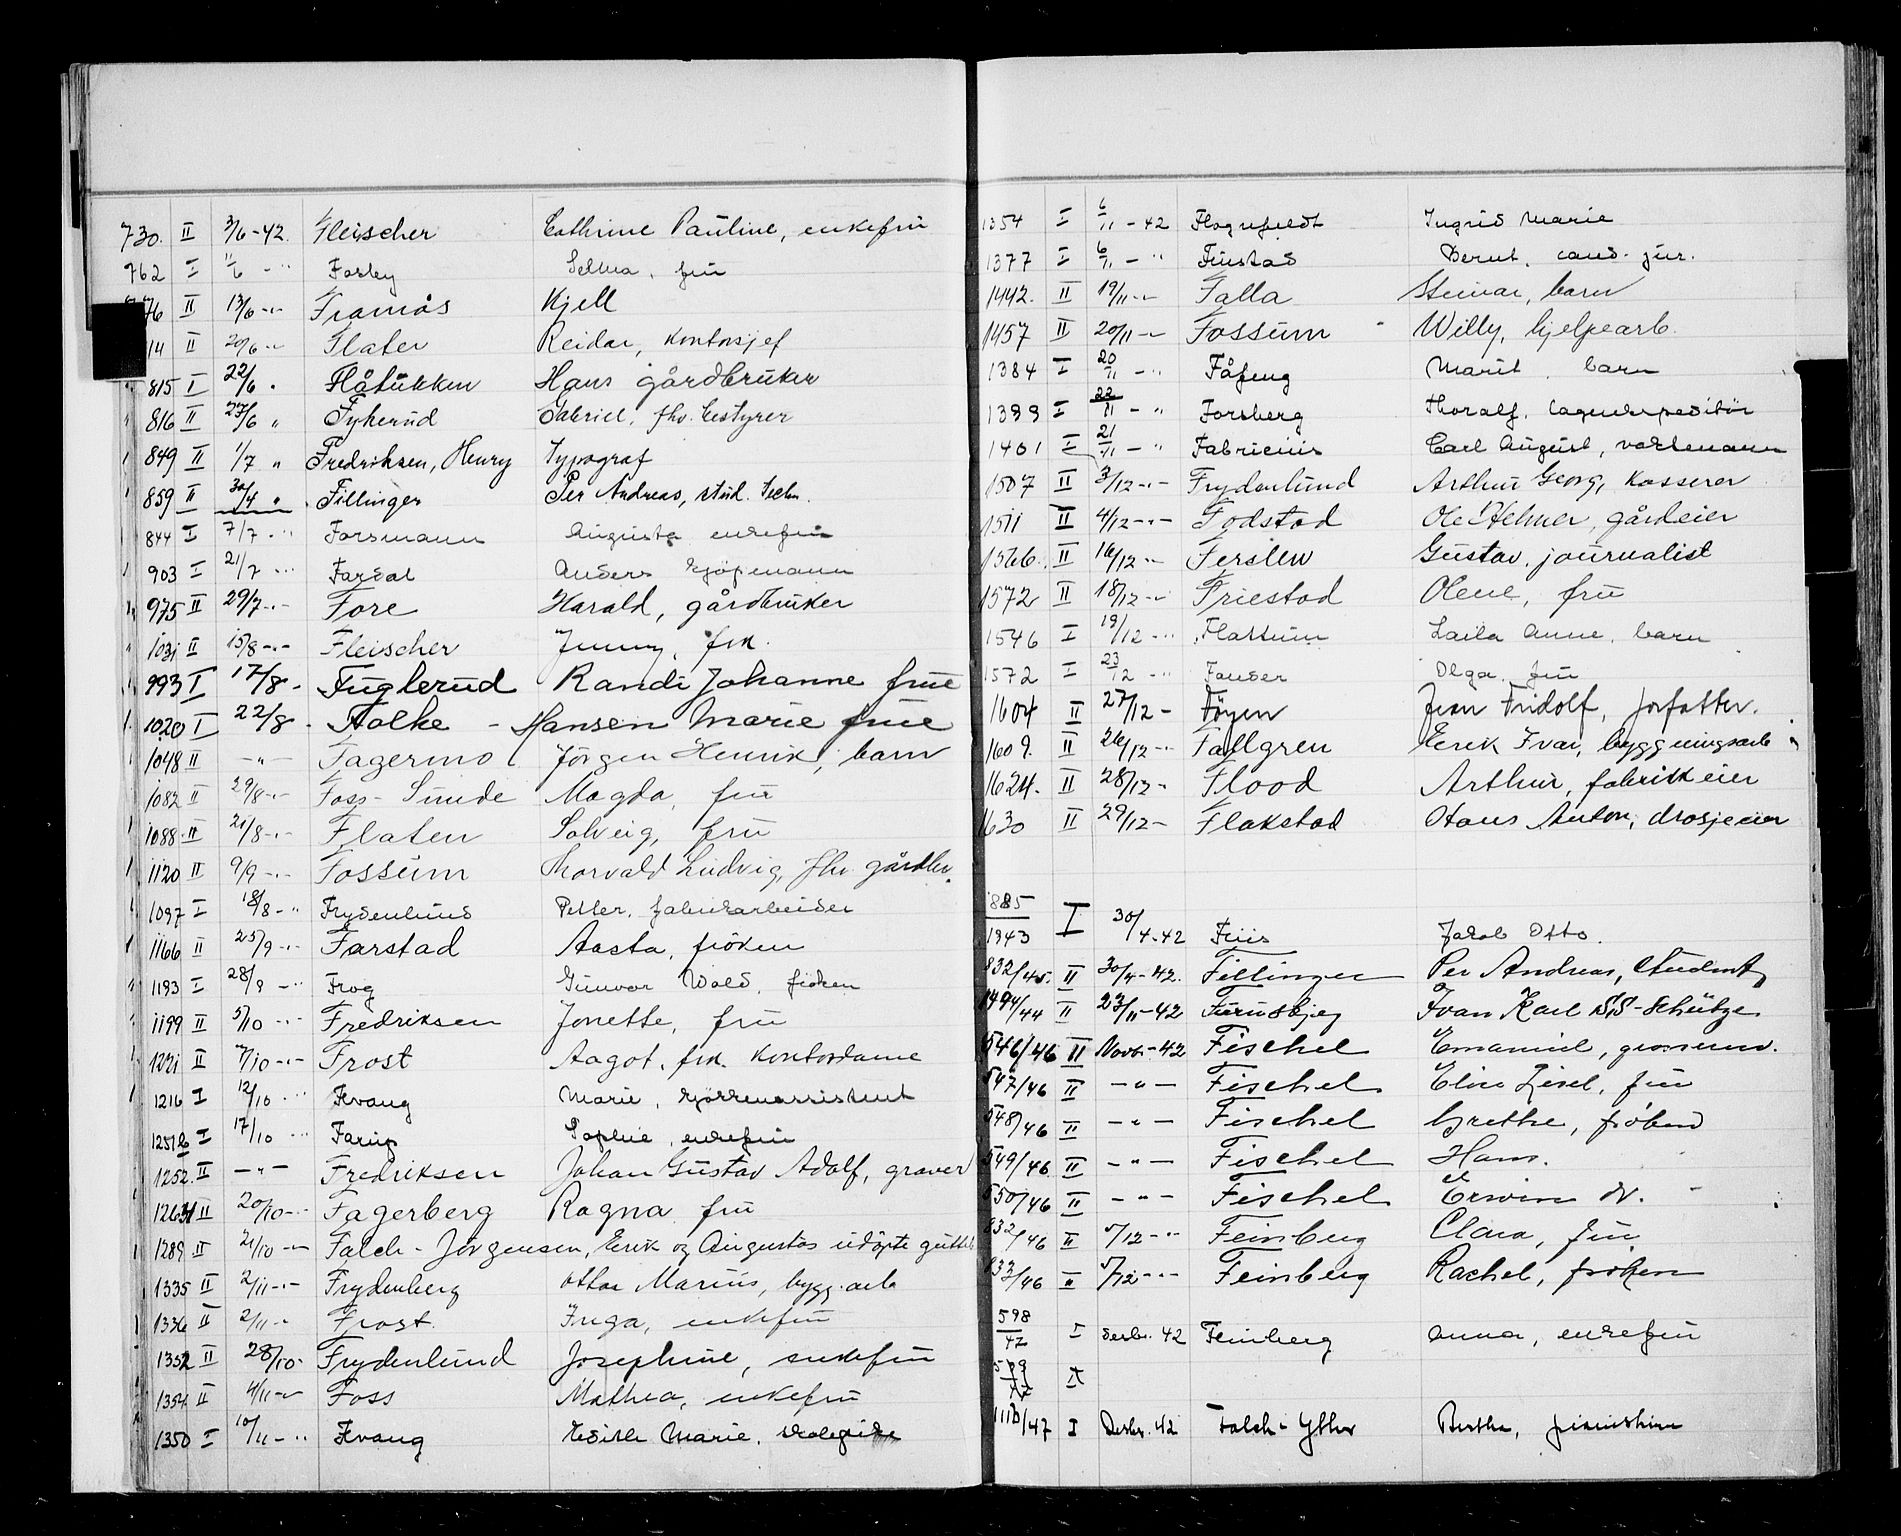 730. II 3/6-42. Fleischer Cathrine Pauline, enkefru
762 I 11/6 - " Fosby Selma, fru
76 II 13/6 -"- Framås Kjell
14 II 20/6 -"- Flater Reidar, kontorsjef
815 I 22/6 " Flåtukken Hans gårdbruker
816 II 27/6 " Fykerud Gabriel, fhv. bestyrer
849 II 1/7 " Fredriksen, Henry Typograf
859 II 30/4 " Fillinger Per Andreas, stud. techn.
844 I 7/7 - " Forsmann Augusta enkefru
903 I 21/7 - " Fardal Anders kjöpmann
975 II 29/7 -"- Fore Harald, gårdbruker
1031 II 15/8 -"- Fleischer Jenny, frk.
993 I 17/8 - Fuglerud Randi Johanne frue
1020 I 22/8 - Folke - Hansen Marie frue
1048 II -"- Fagermo Jörgen Henrik, barn
1082 II 29/8 -"- Foss-Sunde Magda, fru
1088 II 21/8 -"- Flaten Solveig, fru
1120 II 9/9 -"- Fossum Thorvald Ludvig, fhv. gårdbr.
1097 I 18/8 - " Frydenlund Petter, fabrikarbeider
1166 II 25/9 -"- Farstad Aasta, fröken
1193 I 28/9 - " Frog Gunvor Wold, fröken
1199 II 5/10 -"- Fredriksen Jonette, fru
1221 II 7/10 -"- Frost Aagot, frk. kontordame
1216 I 12/10 - " Kvang Marie, kjökkenassistent
1251 I 17/10 - " Farup Sophie, enkefru
1252 II -"- Fredriksen Johan Gustav Adolf, graver
1263 II 20/10 -"- Fagerberg Ragna fru
1289 II 21/10 -"- Falch-Jörgensen, Erik og Augustas udöpte guttb
1335 II 2/11 -"- Frydenberg Ottar Marius, bygg. arb
1336 II 2/11 -"- Frost Inga, enkefru
1352 II 28/10 - Frydenlund Josephine, enkefru
1354 II 4/11 -"- Foss Mathea, enkefru
1350 I 10/11 - " Kvang Edith Marie,
1354 I 6/11 - 42 Flognfeldt Ingrid Marie
1377 I 6/11 - " Finstad Bernt, cand. jur.
1442. II 19/11 -"- Falla Steinar, barn
1457 II 20/11 -"- Fossum Willy, hjelpearb.
1384 I 20/11 - " Fåfeng Marit, barn
1399 I 22/11 - " Forsberg Thoralf, lagerekspeditör
1401 I 21/11 - " Fabricius Carl August, vaktmann
1507 II 3/12 -"- Frydenlund Arthur Georg, kasserer
1511 II 4/12 -"- Fodstad Ole Helmer, gårdeier
1566. II 16/12 -"- Fersten Gustav, journalist
1572 II 18/12 -"- Friestad Olene, fru
1546 I 19/12 - " Flattum Laila Anne, barn
1572 I 23/12 - " Fauser Olga, fru
1604 II 27/12 - Föyen Jean Fridolf, forfatter.
1609. II 26/12 -"- Fallgren Erik Ivar, byggningsarb
1624. II 28/12 - Flood Arthur, fabrikkeier
1630 II 29/12 - Flakstad Hans Anton, drosjeeier
885/1943 I 30/4-42 Friis Jakob Otto.
832/45. II 30/4-42. Fillinger Per Andreas, Student
1494/44 II 23/11-42 Furuskjeg Ivan Karl SS-Schütze
546/46 II Novbr-42 Fischel Emanuel, grosserer.
547/46 II -"- Fischel Elise Zisel, fru
548/46 II -"- Fischel Grethe, fröken
549/46 II -"- Fischel Hans.
550/46 II -"- Fischel Erwin dr.
832/46 II 5/12 -"- Feinberg Clara, fru
833/46 II 5/12 -"- Feinberg Rachel, fröken
598/47 I Desbr. 42 Feinberg Anna, enkefru
599/47 I
1116/47 I Desbr. 42 Falch-Ytter Berthe,